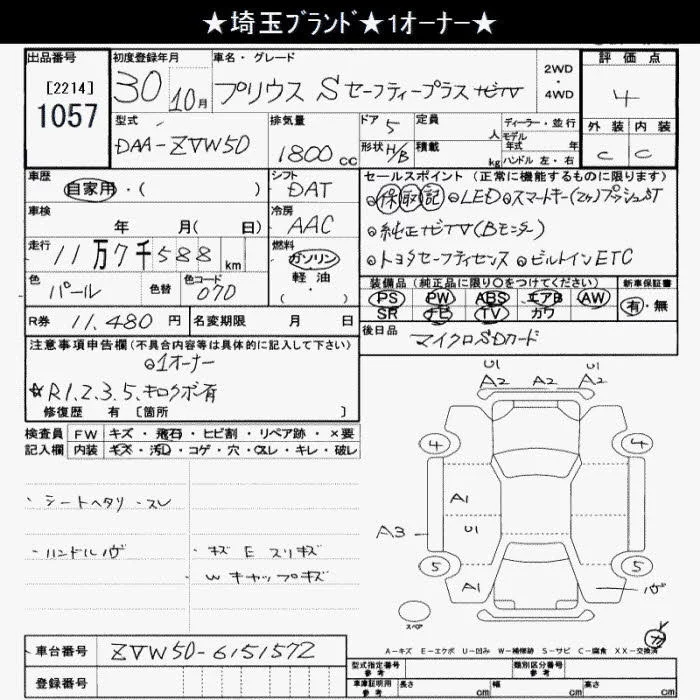 ★埼玉ブランド★1オーナー★
出品番号
[2214]
1057
初度登録年月
30 10月
車名・グレード
プリウス Sセーフティープラス ナビTV
2WD
・
4WD
評価点
4
外装 内装
C C
型式
DAA-ZVW50
排気量
1800 CC
ドア 5
形状 H/B
定員 人
積載 kg
ディーラー・並行
モデル
年式 年
ハンドル 左・右
車歴
自家用・( )
シフト
DAT
車検
年 月( 日)
冷房
AAC
走行
11万7千588 km
燃料
ガソリン
軽・油
(・)
色
パール
色替
色コード
070
R券 11,480 円
名変期限 月 日
セールスポイント(正常に機能するものに限ります)
◎保取記 ◎LED◎スマートキー(2ケ)プッシュST
◎純正ナビTV(Bモニター)
◎トヨタセーフティセンス ◎ビルトインETC
装備品(純正品に限り○をつけてください)
新車保証書
PS PW ABS エアB AW
SR ナビ TV カワ
有・無
後日品
マイクロSDカード
注意事項申告欄(不具合内容等は具体的に記入して下さい)
◎1オーナー
☆R1.2.3.5.キロクボ有
修復歴 有 [箇所 ]
検査員
記入欄
FW キズ・飛石・ヒビ割・リペア跡・×要
内装 キズ・汚し・コゲ・穴・スレ・キレ・破レ
・シートヘタリ・スレ
・ハンドルヅヴ
・キズ E スリキズ
・Wキャップキズ
U1 U1
A2 A2 A2
4 4
A1
A3 U1
5 5
A1
スペア
A-キズ E-エクボ U-凹み W-補修跡 S-サビ C-腐食 XX-交換済
車台番号 ZVW50-6151572
登録番号
型式指定番号
参考
類別区分番号
参考
車庫証明用
参考
長さ cm 幅 cm 高さ cm